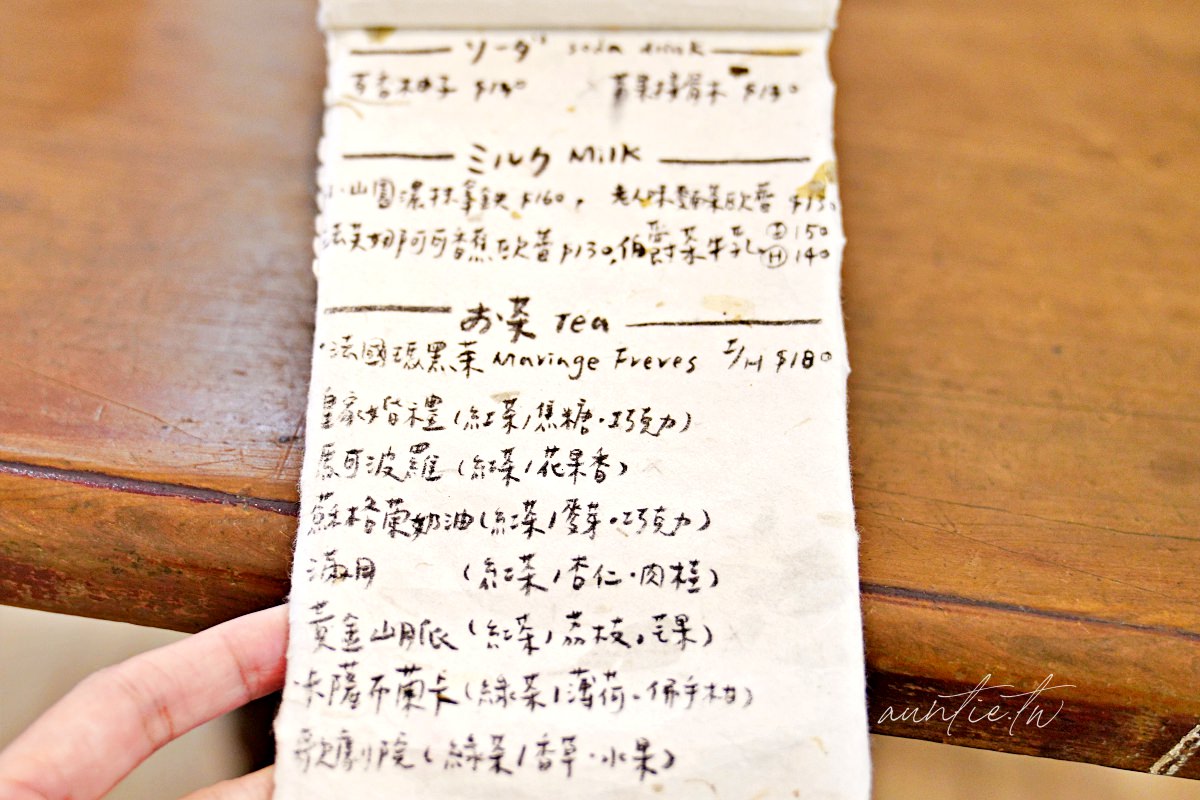 ソーダ soda drink
百香柚子 $130 蘋果接骨木 $130
ミルク Milk
小山園濃抹拿鐵 $160. 老人味麵茶歐蕾 $130
法芙娜阿可香蕉歐蕾 $130. 伯爵茶牛乳 Ⓘ150
Ⓗ140
お茶 Tea
・法國瑪黑茶 Mariage Freres I/H $180
皇家婚禮(紅茶/焦糖・巧克力)
馬可波羅(紅茶/花果香)
蘇格蘭奶油(紅茶/麥芽・巧克力)
滿月 (紅茶/杏仁・肉桂)
黃金山脈(紅茶/荔枝・芒果)
卡薩布蘭卡(綠茶/薄荷・佛手柑)
歌劇院(綠茶/香草・水果)
auntie.tw